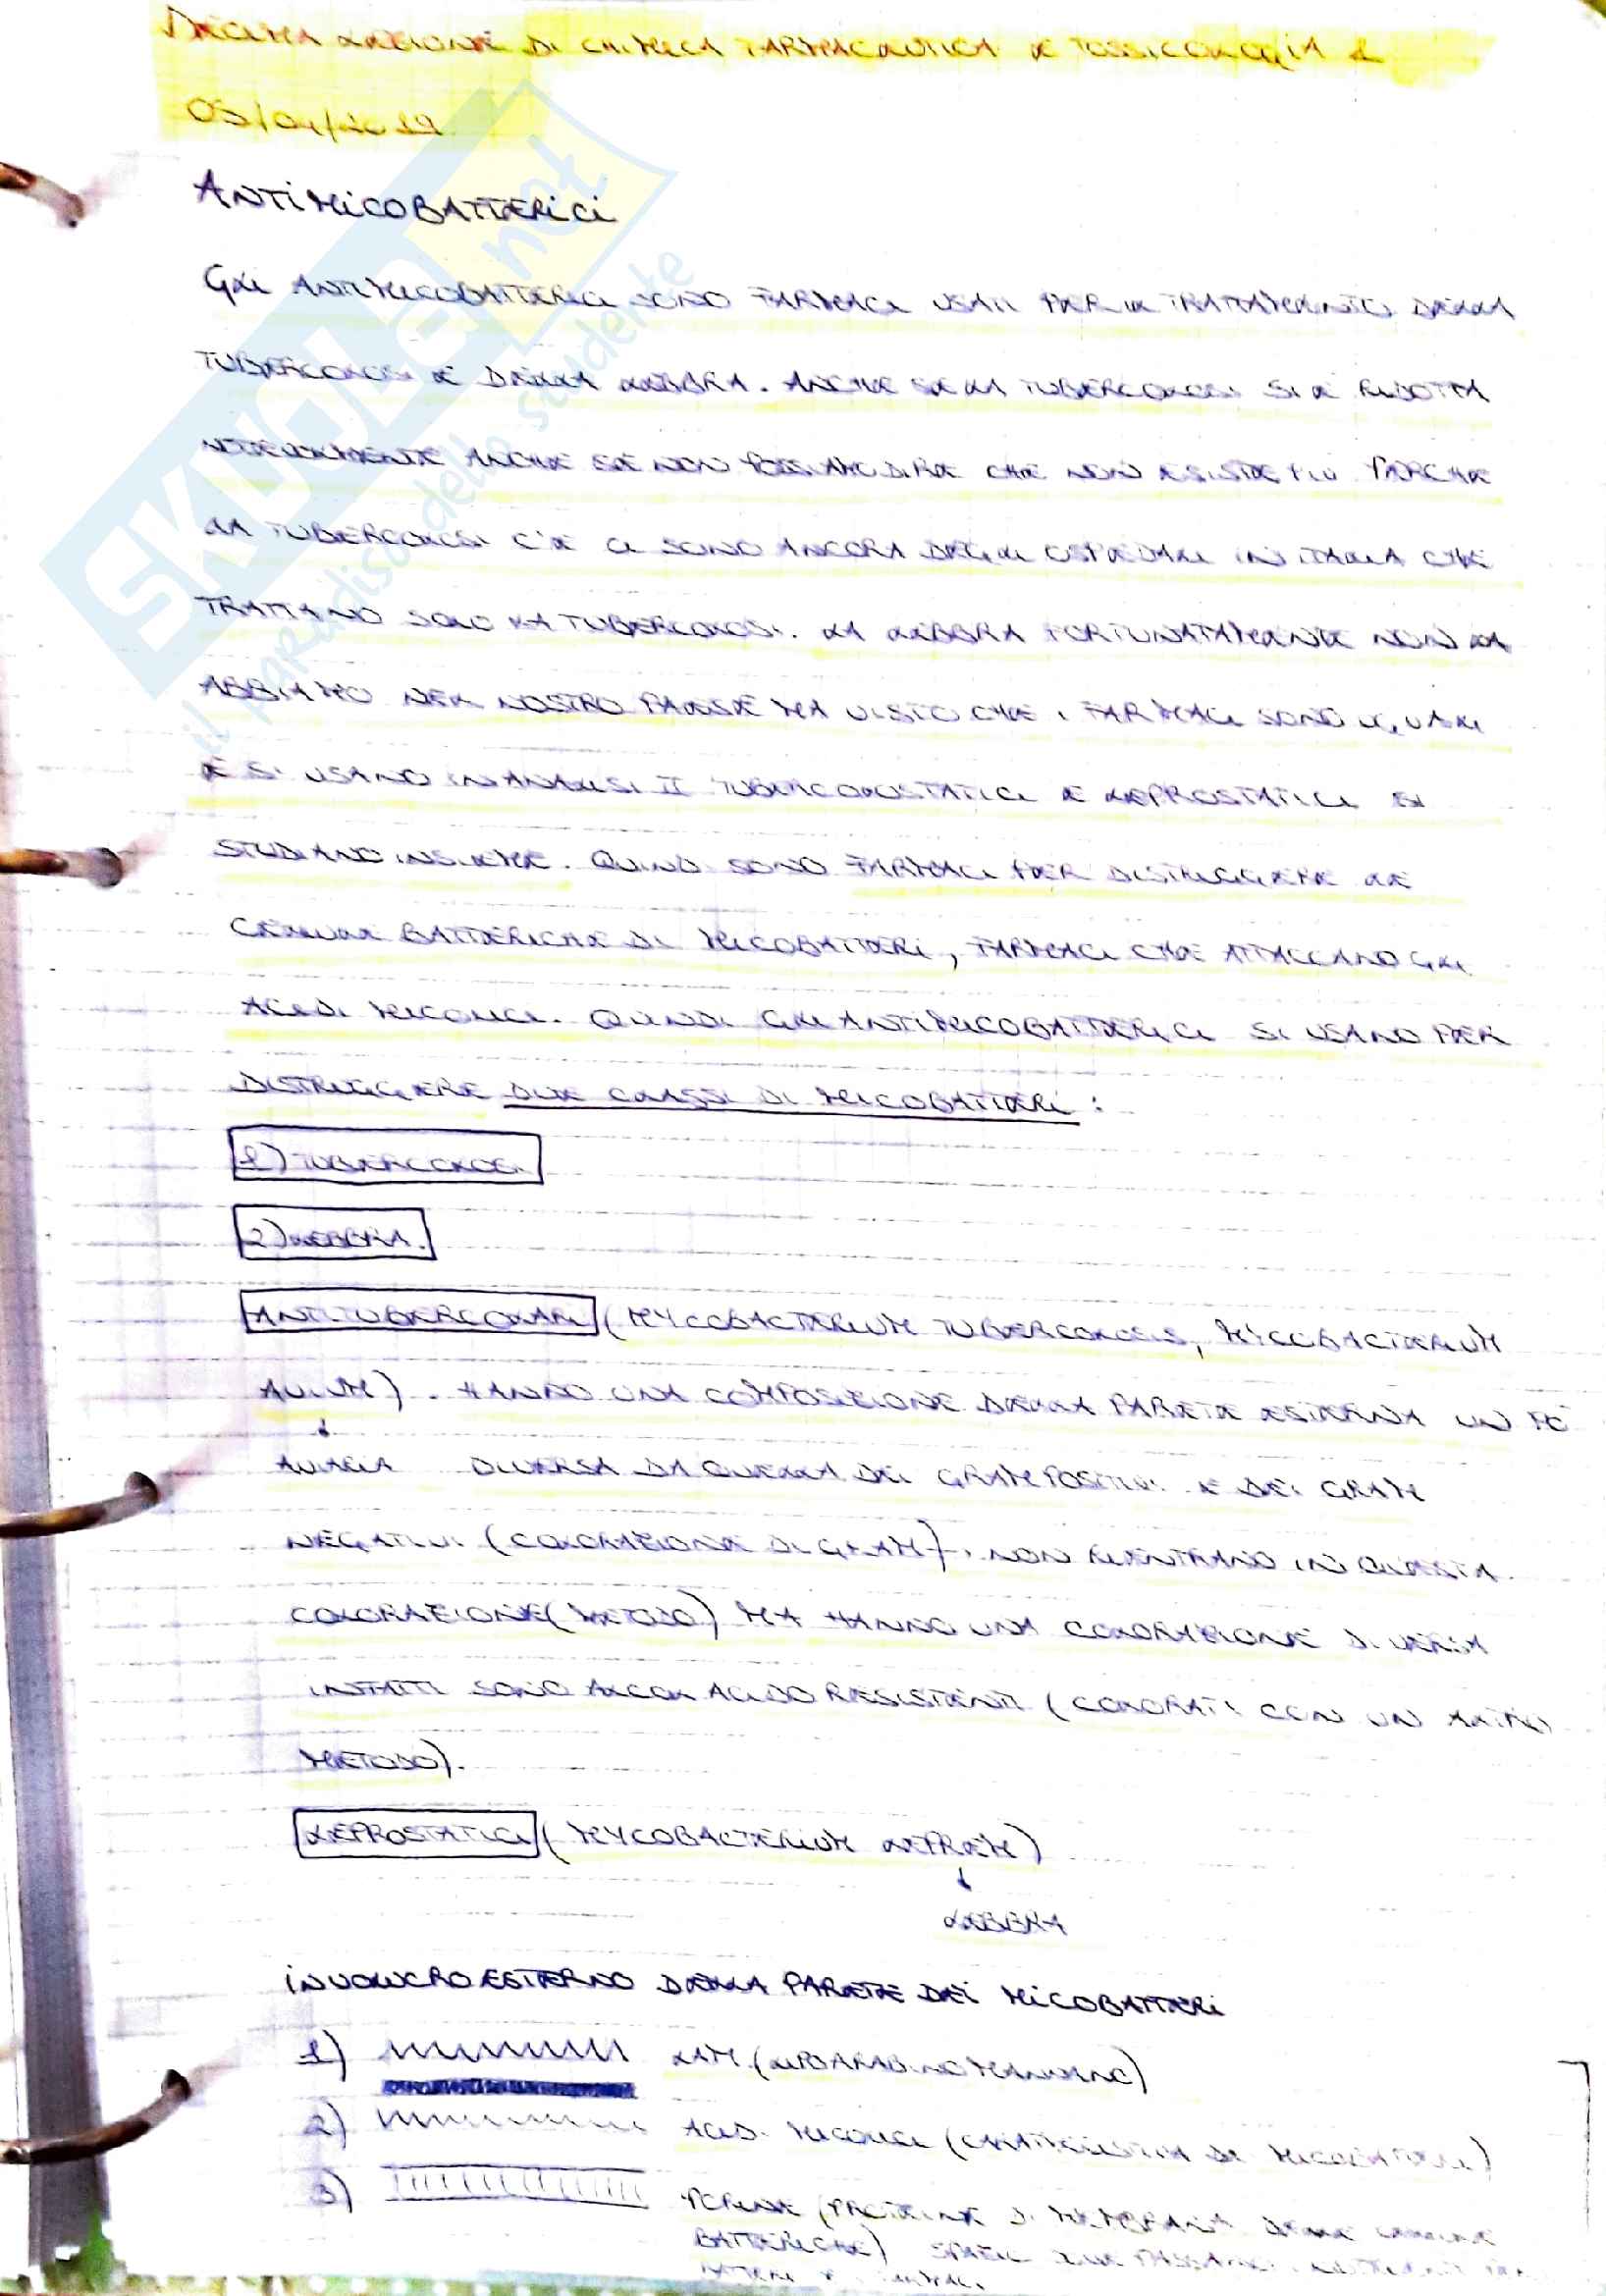 DECIMA LEZIONE DI CHIMICA FARMACEUTICA E TOSSICOLOGIA 1
05/04/2019
ANTIMICOBATTERICI
GLI ANTIMICOBATTERICI SONO FARMACI USATI PER IL TRATTAMENTO DELLA
TUBERCOLOSI E DELLA LEBBRA. ANCHE SE LA TUBERCOLOSI SI E RIDOTTA
NOTEVOLMENTE ANCHE SE NON POSSIAMO DIRE CHE NON ESISTE PIU PERCHE
LA TUBERCOLOSI C'E CI SONO ANCORA DEGLI OSPEDALI IN ITALIA CHE
TRATTANO SOLO LA TUBERCOLOSI. LA LEBBRA FORTUNATAMENTE NON LA
ABBIAMO NEL NOSTRO PAESE MA VISTO CHE I FARMACI SONO UGUALI
E SI USANO IN ANALISI II TUBERCOLOSTATICI E LEPROSTATICI SI
STUDIANO INSIEME. QUINDI SONO FARMACI PER DISTRUGGERE LE
CELLULE BATTERICHE DI MICOBATTERI, FARMACI CHE ATTACCANO GLI
ACIDI MICOLICI. QUINDI GLI ANTIMICOBATTERICI SI USANO PER
DISTRUGGERE DUE CLASSI DI MICOBATTERI:
1) TUBERCOLOSI
2) LEBBRA.
ANTITUBERCOLARI (MYCOBACTERIUM TUBERCOLOSIS, MYCOBACTERIUM
AVIUM). HANNO UNA COMPOSIZIONE DELLA PARETE ESTERNA UN PO'
AVIARIA DIVERSA DA QUELLA DEI GRAM POSITIVI E DEI GRAM
NEGATIVI (COLORAZIONE DI GRAM), NON RIENTRANO IN QUESTA
COLORAZIONE (METODO) MA HANNO UNA COLORAZIONE DIVERSA
INFATTI SONO ALCOL ACIDO RESISTENTI (COLORATI CON UN ALTRO
METODO).
LEPROSTATICI (MYCOBACTERIUM LEPRAEM)
LEBBRA
INVOLUCRO ESTERNO DELLA PARETE DEI MICOBATTERI
1) LAM (LIPOARABINOMANNANO)
2) ACIDI MICOLICI (CARATTERISTICA DEI MICOBATTERI)
3) PORINE (PROTEINE DI MEMBRANA DELLE CELLULE
BATTERICHE)
SKUOLA.net
il paradiso dello studente